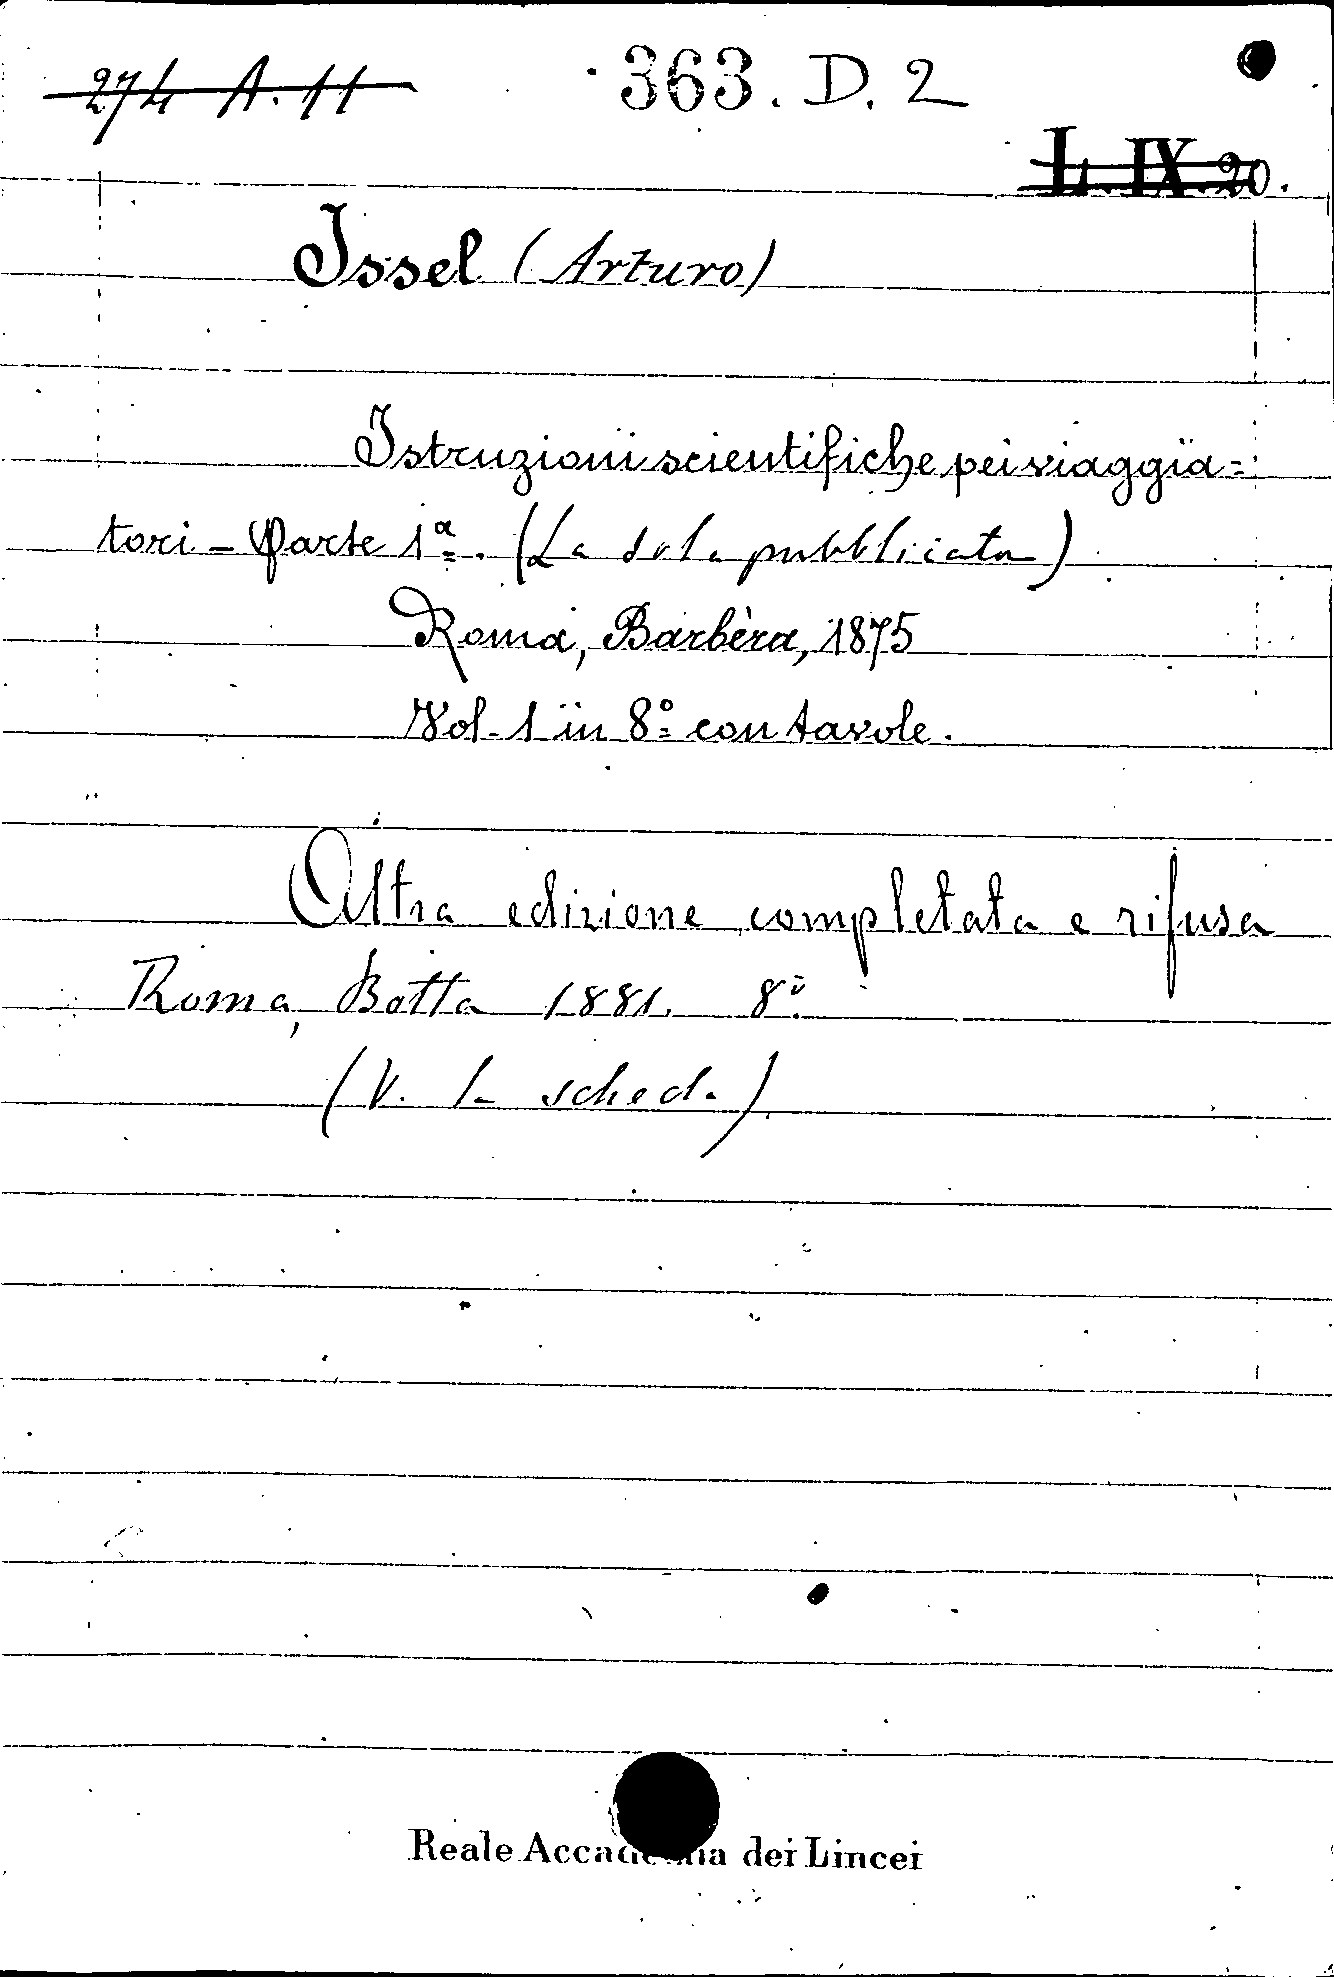 274 A. 11 363. D. 2
L. IX. 20.
Issel (Arturo)
Istruzioni scientifiche pei viaggia=
tori - Parte 1ª. (La sola pubblicata)
Roma, Barbèra, 1875
Vol. 1 in 8º con tavole.
Altra edizione completata e rifusa
Roma, Botta 1881. 8º.
(V. la scheda)
Reale Accademia dei Lincei